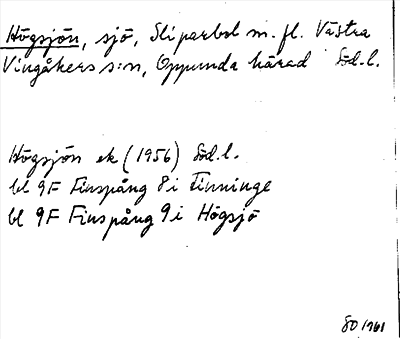 Högsjön, sjö, Sliparbol m. fl. Västra
Vingåkers s:n, Oppunda härad Söd.l.
Högsjön ek (1956) Söd.l.
bl 9F Finspång 8i Finninge
bl 9F Finspång 9i Högsjö
80 1961